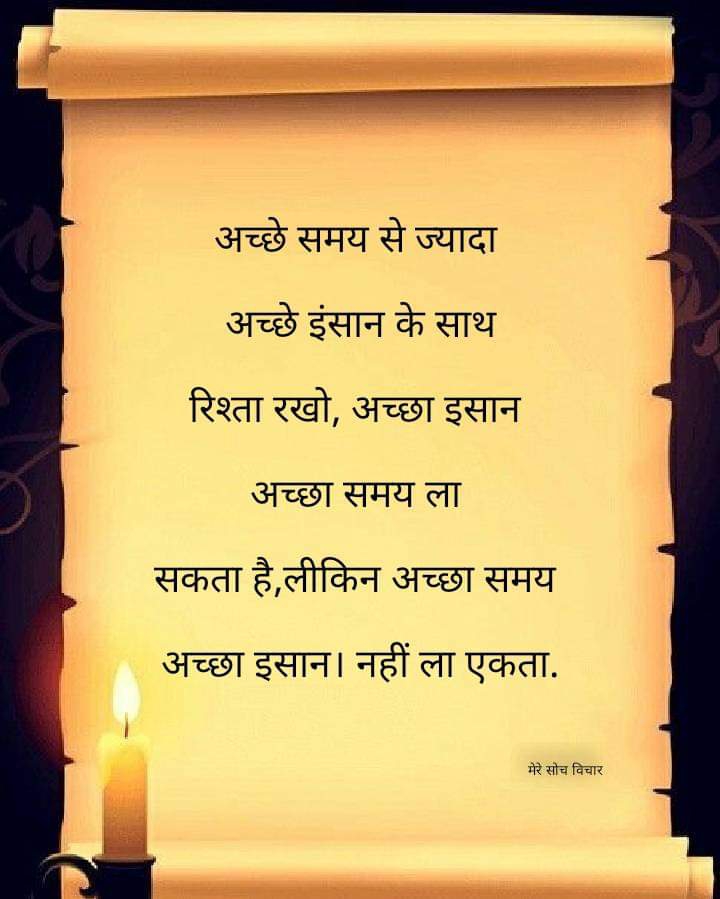 अच्छे समय से ज्यादा
अच्छे इंसान के साथ
रिश्ता रखो, अच्छा इसान
अच्छा समय ला
सकता है,लीकिन अच्छा समय
अच्छा इसान। नहीं ला एकता.
मेरे सोच विचार